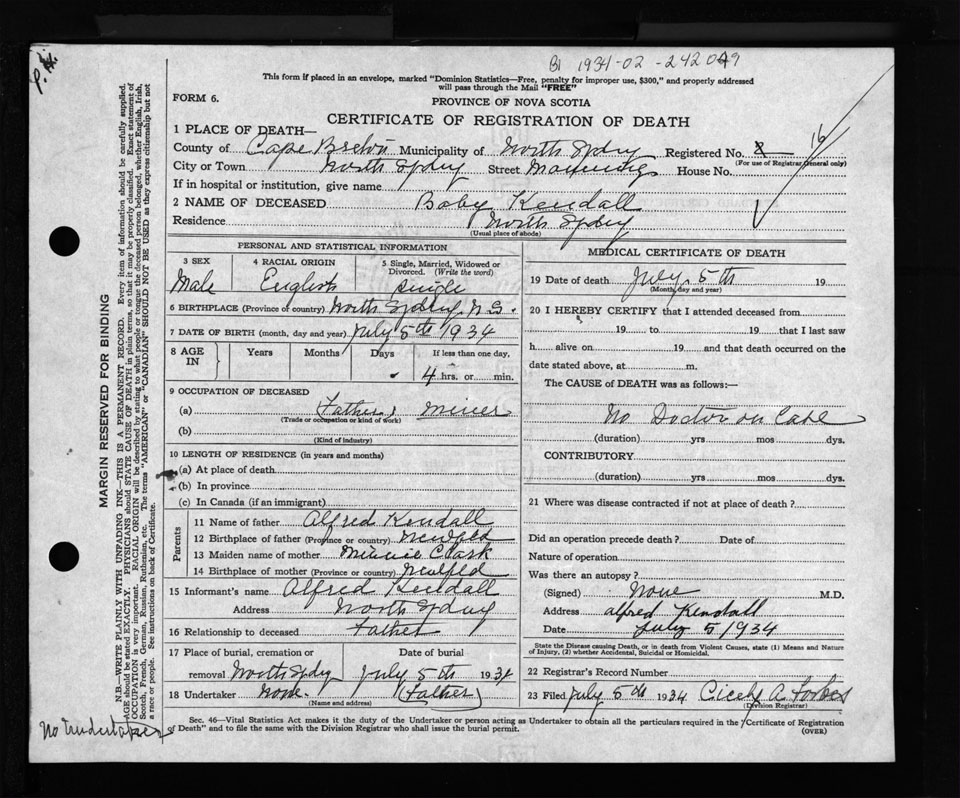 P.H.
B1 1934-02-242049
This form if placed in an envelope, marked "Dominion Statistics—Free, penalty for improper use, $300," and properly addressed
will pass through the Mail "FREE"
FORM 6.
PROVINCE OF NOVA SCOTIA
CERTIFICATE OF REGISTRATION OF DEATH
1 PLACE OF DEATH—
County of Cape Breton Municipality of North Sydney Registered No. 16
(For use of Registrar General only)
City or Town North Sydney Street House No.
If in hospital or institution, give name
2 NAME OF DECEASED Baby Kendall
Residence North Sydney
(Usual place of abode)
PERSONAL AND STATISTICAL INFORMATION
3 SEX 4 RACIAL ORIGIN 5 Single, Married, Widowed or
Divorced. (Write the word)
Male English single
6 BIRTHPLACE (Province or country) North Sydney, N.S.
7 DATE OF BIRTH (month, day and year) July 5th 1934
8 AGE IN Years Months Days If less than one day,
4 hrs. or min.
9 OCCUPATION OF DECEASED
(a) Father, miner
(Trade or occupation or kind of work)
(b)
(Kind of industry)
10 LENGTH OF RESIDENCE (in years and months)
(a) At place of death
(b) In province
(c) In Canada (if an immigrant)
Parents
11 Name of father Alfred Kendall
12 Birthplace of father (Province or country) Newfld
13 Maiden name of mother Minnie Clark
14 Birthplace of mother (Province or country) Newfld
15 Informant's name Alfred Kendall
Address North Sydney
16 Relationship to deceased Father
17 Place of burial, cremation or Date of burial
removal North Sydney July 5th 1934
18 Undertaker None. (Father)
(Name and address)
MEDICAL CERTIFICATE OF DEATH
19 Date of death July 5th 19
(Month, day and year)
20 I HEREBY CERTIFY that I attended deceased from
19 to 19 that I last saw
h alive on 19 and that death occurred on the
date stated above, at m.
The CAUSE of DEATH was as follows:—
No Doctor on Case
(duration) yrs mos dys.
CONTRIBUTORY
(duration) yrs mos dys.
21 Where was disease contracted if not at place of death?
Did an operation precede death? Date of
Nature of operation
Was there an autopsy?
(Signed) None M.D.
Address Alfred Kendall
Date July 5/1934
State the Disease causing Death, or in death from Violent Causes, state (1) Means and Nature
of Injury, (2) whether Accidental, Suicidal or Homicidal.
22 Registrar's Record Number
23 Filed July 5th 1934 A. Forbes
(Division Registrar)
Sec. 46—Vital Statistics Act makes it the duty of the Undertaker or person acting as Undertaker to obtain all the particulars required in the "Certificate of Registration
of Death" and to file the same with the Division Registrar who shall issue the burial permit. (OVER)
MARGIN RESERVED FOR BINDING
N.B.—WRITE PLAINLY WITH UNFADING INK—THIS IS A PERMANENT RECORD. Every item of information should be carefully supplied.
AGE should be stated EXACTLY. PHYSICIANS should STATE CAUSE OF DEATH in plain terms, so that it may be properly classified. Exact statement of
OCCUPATION is very important. RACIAL ORIGIN will be described by stating to what people or tongue the deceased person belonged, whether English, Irish,
Scotch, French, German, Russian, Ruthenian, etc. The terms "AMERICAN" or "CANADIAN" SHOULD NOT BE USED as they express citizenship but not
a race or people. See instructions on back of Certificate.
No Undertaker